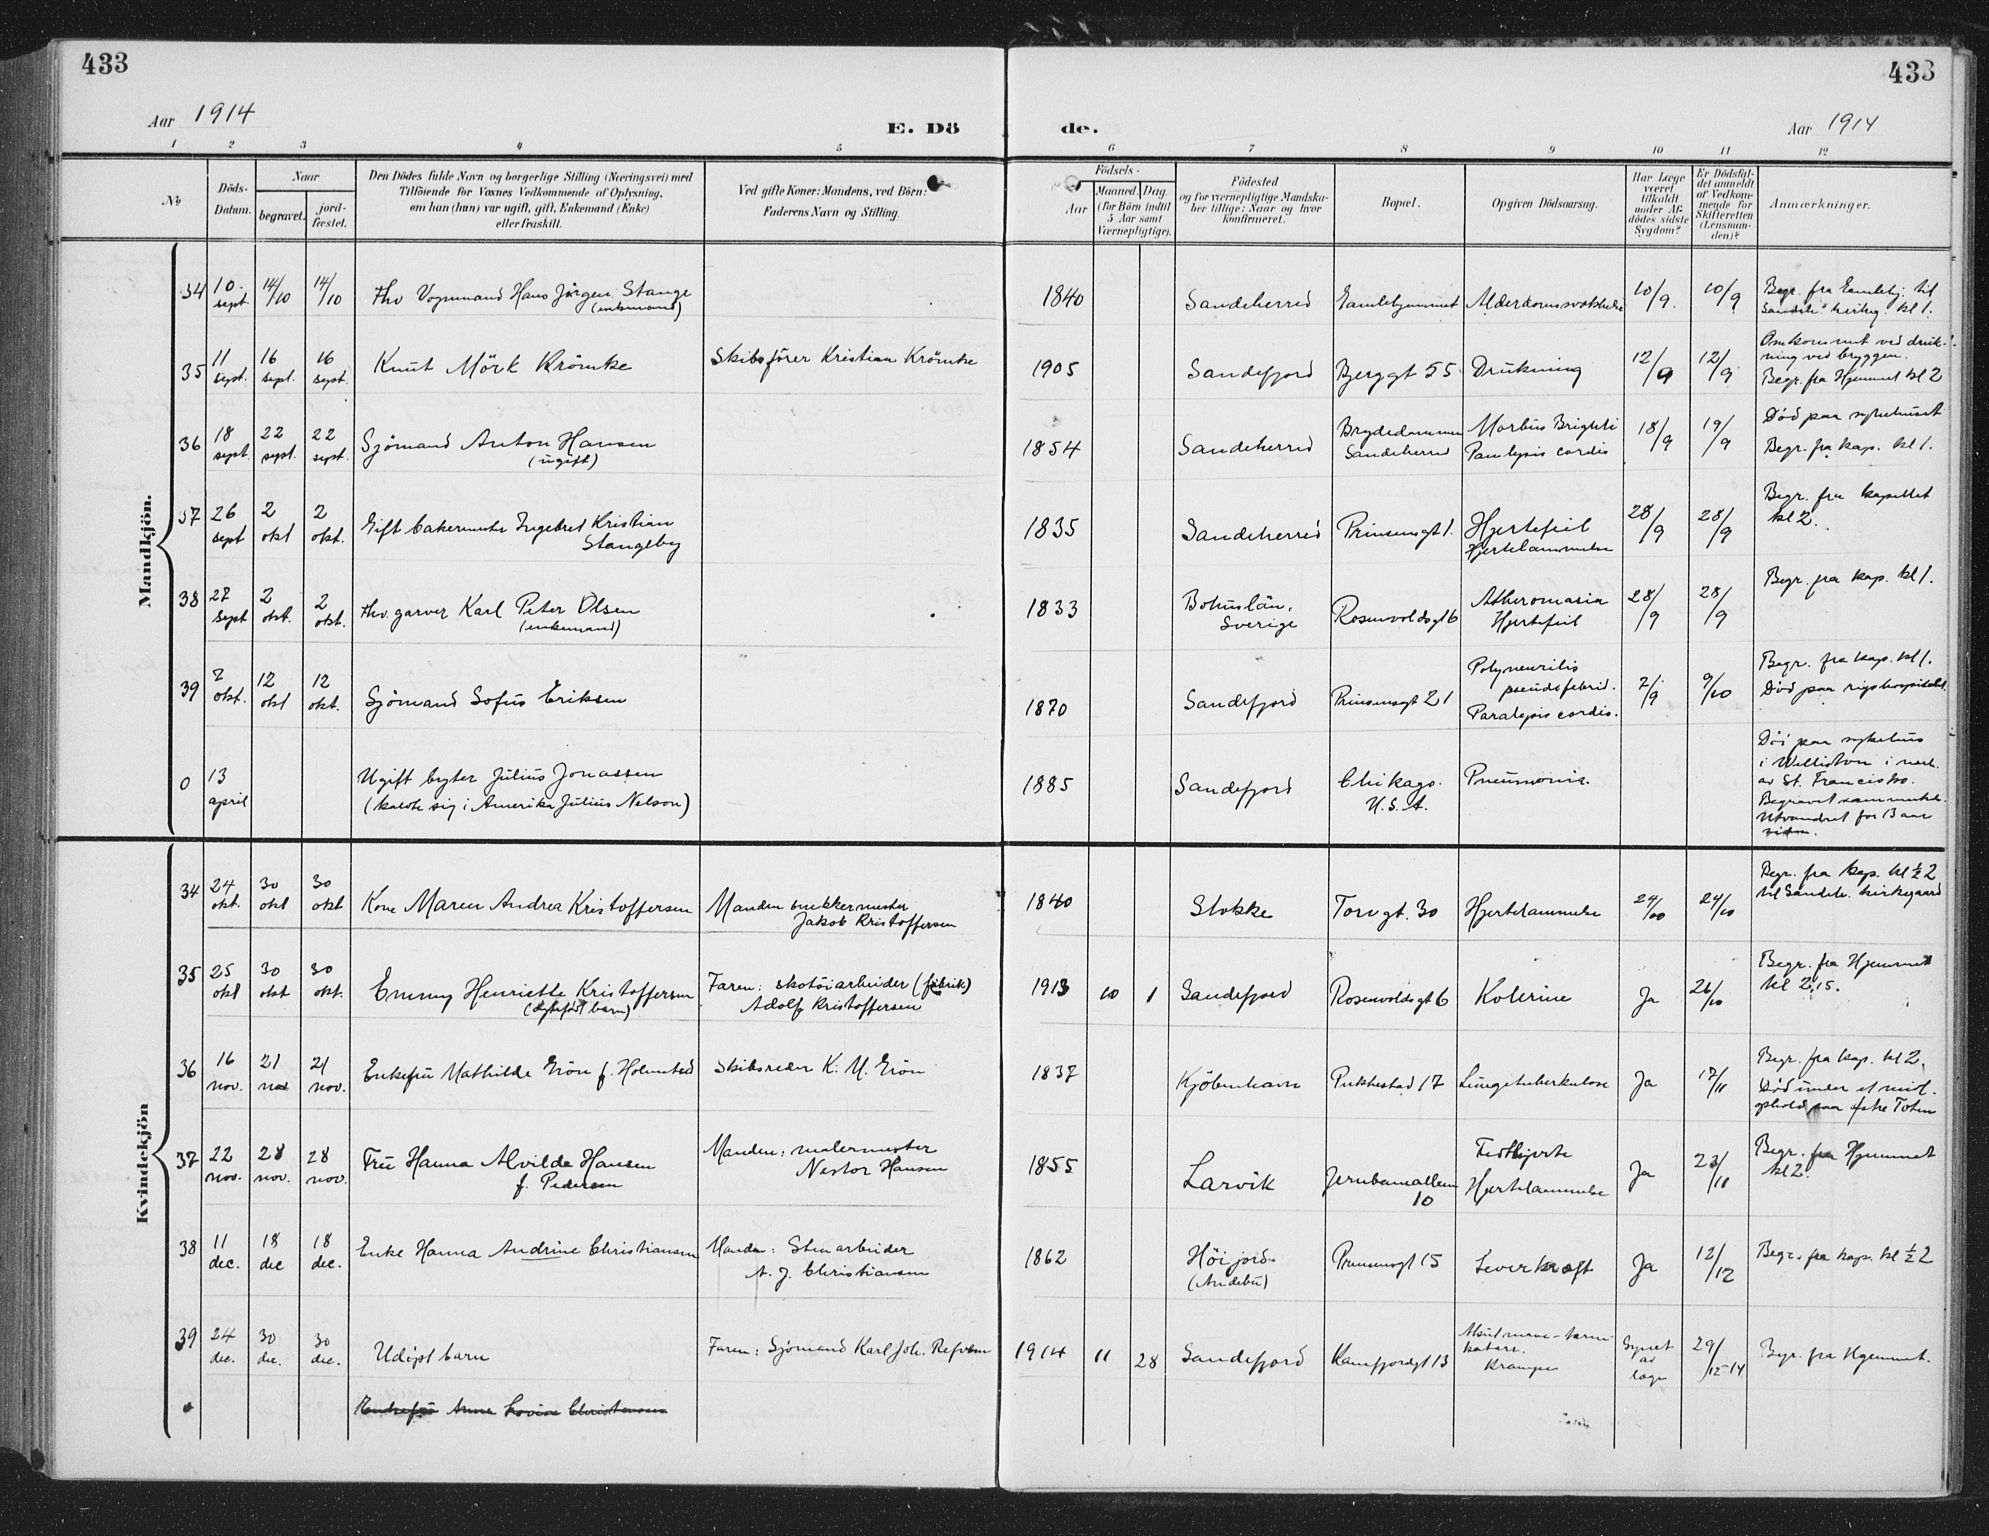 433
433
Aar 1914
E. Dö
de.
Aar 1914
1 2 3 4 5 6 7 8 9 10 11 12
No
Döds-
Datum.
Naar
begravet.
jord-
fæstet.
Den Dödes fulde Navn og borgerlige Stilling (Næringsvei) med
Tilföiende for Voxnes Vedkommende af Oplysning,
om han (hun) var ugift, gift, Enkemand (Enke)
eller fraskilt.
Ved gifte Koner: Mandens, ved Börn:
Faderens Navn og Stilling.
Födsels-
Aar
Maaned. Dag.
(for Börn indtil
5 Aar samt
Værnepligtige).
Födested
og for værnepligtige Mandska-
ber tillige: Naar og hvor
konfirmeret.
Bopæl.
Opgiven Dödsaarsag.
Har Læge
været
tilkaldt
under Af-
dödes sidste
Sygdom?
Er Dödsfal-
det anmeldt
af Vedkom-
mende for
Skifteretten
(Lensman-
den)?
Anmærkninger.
Mandkjön.
34 10. sept. 14/10 14/10 Fhv Vognmand Hans Jörgen Stange
(enkemand)
1840 Sandeherred Gamlehjemmet Alderdomssvakhet 10/9. 10/9
Begr. fra Gamlehj. til
kl 1.
35 11 sept. 16 sept. 16 sept. Knut Mörk Krömke Skibsförer Kristian Krömke
1905 Sandefjord Bjerggt 55 Drukning 12/9 12/9
Omkommet ved druk-
ning ved bryggen.
Begr. fra Hjemmet kl 2
36 18 sept. 22 sept. 22 sept. Sjömand Anton Hansen
(ugift)
1854 Sandeherred Brydedammen
Sandeherred
Morbus Brighti
Paralysis cordis
18/9 19/9
Död paa sykehuset
Begr. fra kap. kl 1.
37 26 sept 2 okt 2 okt. Gift bakermester Ingebret Kristian
Stangeby
1835 Sandeherred Prinsensgt 1. Hjertefeil
Hjertelammelse
28/9 28/9
Begr. fra kapellet
kl 2.
38 27 sept 2 okt. 2 okt. Fhv. garver Karl Peter Olsen
(enkemand)
1833 Bohuslän,
Sverige
Rosenvoldsgt 6 Atheromasia
Hjertefeil
28/9 28/9
Begr. fra kap. kl 1.
39 7 okt. 12 okt 12 okt. Sjömand Sofus Eriksen
1870 Sandefjord Prinsensgt 21
Polyneuritis
pseudofebril.
Paralysis cordis.
7/9 9/10
Begr. fra kap. kl 1.
Död paa rigshospitalet.
0 13 april Ugift bryter Julius Jonassen
(kaldte sig i Amerika Julius Nelson)
1885 Sandefjord Chikago.
U. S. A.
Pneumonia.
Död paa sykehus
i Williston i
av St. Francisko.
Begravet sammesteds.
Utvandret for 13 aar
siden.
Kvindekjön
34 24 okt. 30 okt 30 okt Kone Maren Andrea Kristoffersen Manden snekkermester
Jakob Kristoffersen
1840 Stokke Torvgt. 30 Hjertelammelse 24/10 24/10
Begr. fra kap. kl ½ 2
til Sandeh. kirkegaard
35 25 okt 30 okt 30 okt. Emmy Henriette Kristoffersen
(egtefödt barn)
Faren: skotöiarbeider (fabrik)
Adolf Kristoffersen
1913 10 1 Sandefjord Rosenvoldsgt 6 Kolerine Ja 26/10
Begr. fra Hjemmet
kl 2,15.
36 16 nov. 21 nov 21 nov. Enkefru Mathilde Grön f. Holmsted Skibsreder K. M. Grön
1837 Kjöbenhavn Pukkestad 17 Lungetuberkulose Ja 17/11
Begr. fra kap. kl 2.
Död under et midl.
ophold paa östre Toten
37 22 nov. 28 nov. 28 nov. Fru Hanna Alvilde Hansen
f. Pedersen
Manden: malermester
Nestor Hansen
1855 Larvik Jernbanealleen
10
Fedthjerte
Hjertelammelse
Ja 23/11
Begr. fra Hjemmet
kl 2.
38 11 dec. 18 dec 18 dec. Enke Hanna Andrine Christiansen Manden: Stenarbeider
A. J. Christiansen
1862 Höijord
(Andebu)
Prinsensgt 15 Leverkræft Ja 12/12
Begr. fra kap. kl ½ 2
39 24 dec. 30 dec. 30 dec. Udöpt barn Faren: Sjömand Karl Joh. Refven
1914 11 28 Sandefjord Kamfjordgt 13
Akut mave-tarm-
katarr.
Kramper
Synet
av
læge
29/12-14
Begr. fra Hjemmet.
Enkefru Anne Lovise Christensen